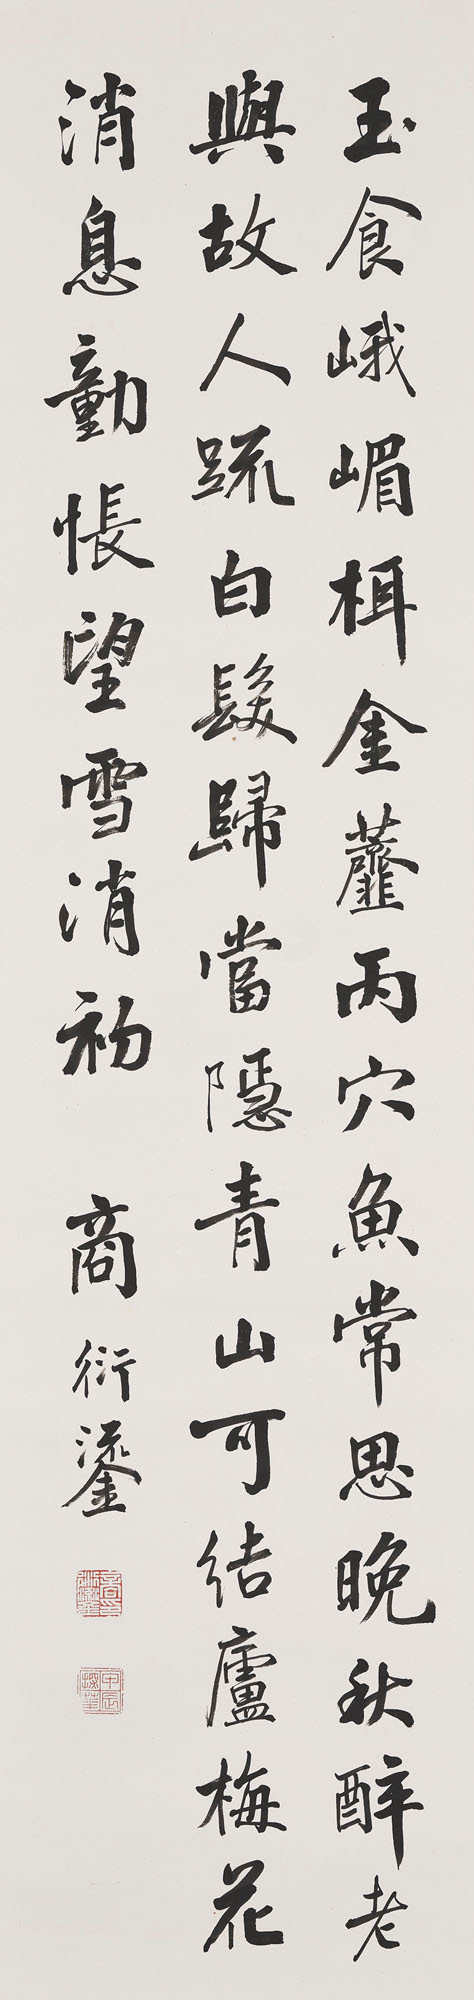 玉食峨嵋栮金虀丙穴魚常思晚秋醉老
與故人疏白髮歸當隱青山可結廬梅花
消息動悵望雪消初 商衍鎏
甲辰探華